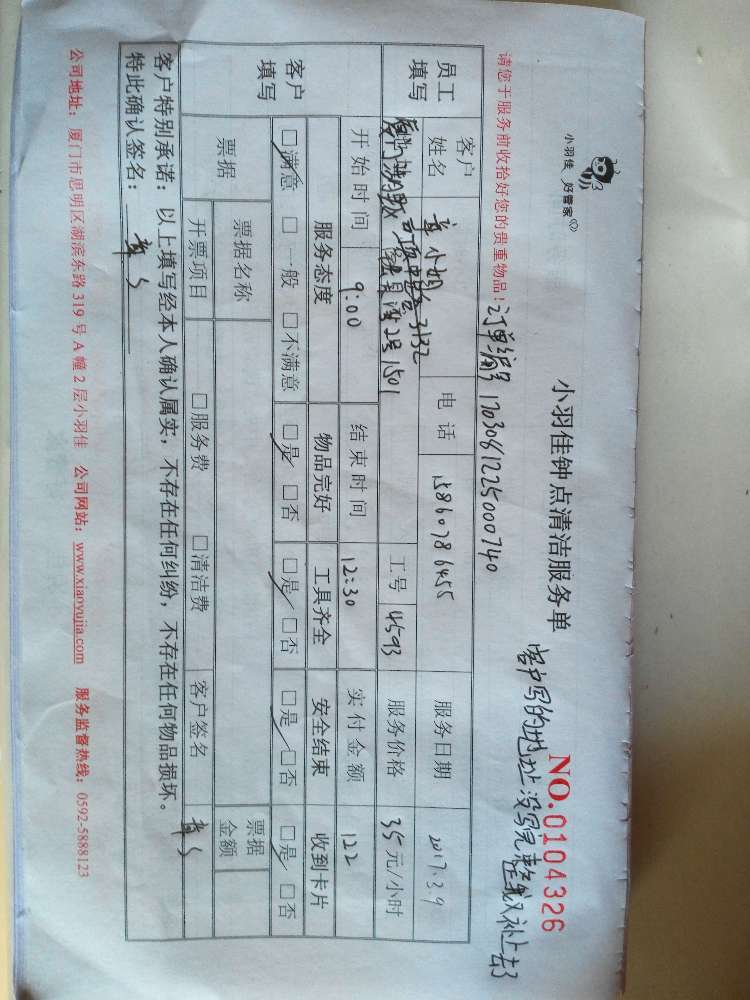 小羽佳 好管家
小羽佳钟点清洁服务单
NO.0104326
客户写的地址没写完整我又补上去了
请您于服务前收拾好您的贵重物品!
订单编号 1703081225000740
员工填写
客户姓名 章小姐 电话 15860786455 服务日期 2017.3.9
3132
2号1501
工号 4593 服务价格 35元/小时
开始时间 9:00 结束时间 12:30 实付金额 122
客户填写
服务态度 物品完好 工具齐全 安全结束 收到卡片
□满意 □一般 □不满意 □是 □否 □是 □否 □是 □否 □是 □否
票据 票据名称 票据金额
开票项目 □服务费 □清洁费 客户签名 章
客户特别承诺:以上填写经本人确认属实,不存在任何纠纷,不存在任何物品损坏。
特此确认签名: 章
公司地址:厦门市思明区湖滨东路319号A幢2层小羽佳 公司网站:www.xiaoyujia.com 服务监督热线:0592-5888123